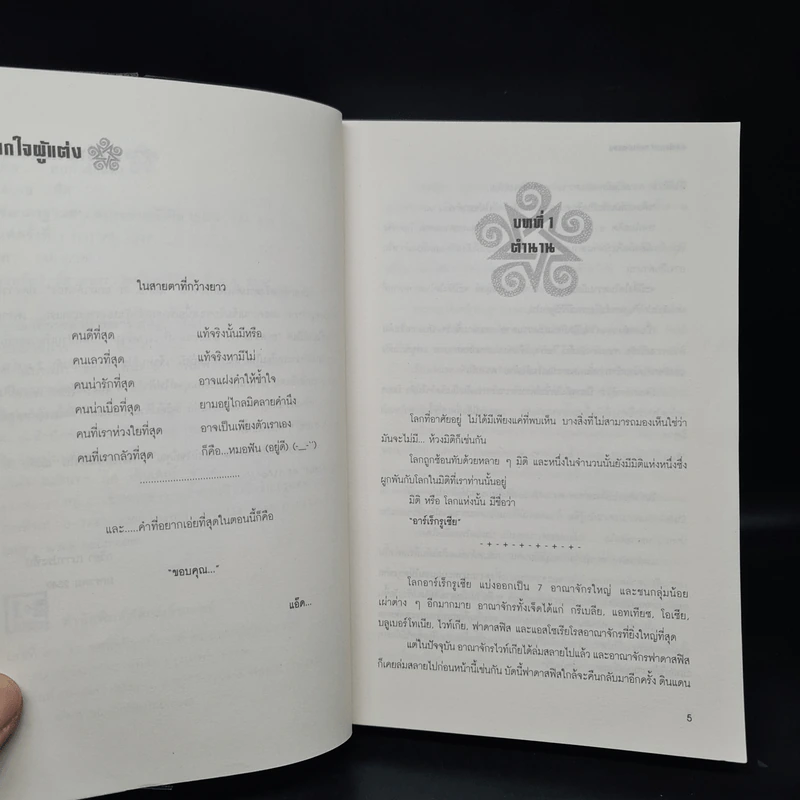 กใจผู้แต่ง
ในสายตาที่กว้างยาว
คนดีที่สุด แท้จริงนั้นมีหรือ
คนเลวที่สุด แท้จริงหามีไม่
คนน่ารักที่สุด อาจแฝงคำให้ช้ำใจ
คนน่าเบื่อที่สุด ยามอยู่ไกลมิคลายคำนึง
คนที่เราห่วงใยที่สุด อาจเป็นเพียงตัวเราเอง
คนที่เรากลัวที่สุด ก็คือ...หมอฟัน (อยู่ดี) (-__-'')
................................
และ.....คำที่อยากเอ่ยที่สุดในตอนนี้ก็คือ
"ขอบคุณ..."
แอ๊ด...
บทที่ 1
ตำนาน
โลกที่อาศัยอยู่ ไม่ได้มีเพียงแค่ที่พบเห็น บางสิ่งที่ไม่สามารถมองเห็นใช่ว่า
มันจะไม่มี... ห้วงมิติก็เช่นกัน
โลกถูกซ้อนทับด้วยหลาย ๆ มิติ และหนึ่งในจำนวนนั้นยังมีมิติแห่งหนึ่งซึ่ง
ผูกพันกับโลกในมิติที่เราท่านนั้นอยู่
มิติ หรือ โลกแห่งนั้น มีชื่อว่า
"อาร์เร็กรูเซีย"
-+-+-+-+-+-
โลกอาร์เร็กรูเซีย แบ่งออกเป็น 7 อาณาจักรใหญ่ และชนกลุ่มน้อย
เผ่าต่าง ๆ อีกมากมาย อาณาจักรทั้งเจ็ดได้แก่ กรีเบลีย, แอทเทียซ, โอเซีย,
บลูเบอร์โทเนีย, ไวท์เกีย, ฟาดาสฟิส และแอสโซเรียโรสอาณาจักรที่ยิ่งใหญ่ที่สุด
แต่ในปัจจุบัน อาณาจักรไวท์เกียได้ล่มสลายไปแล้ว และอาณาจักรฟาดาสฟิส
ก็เคยล่มสลายไปก่อนหน้านี้เช่นกัน บัดนี้ฟาดาสฟิสใกล้จะคืนกลับมาอีกครั้ง ดินแดน
5